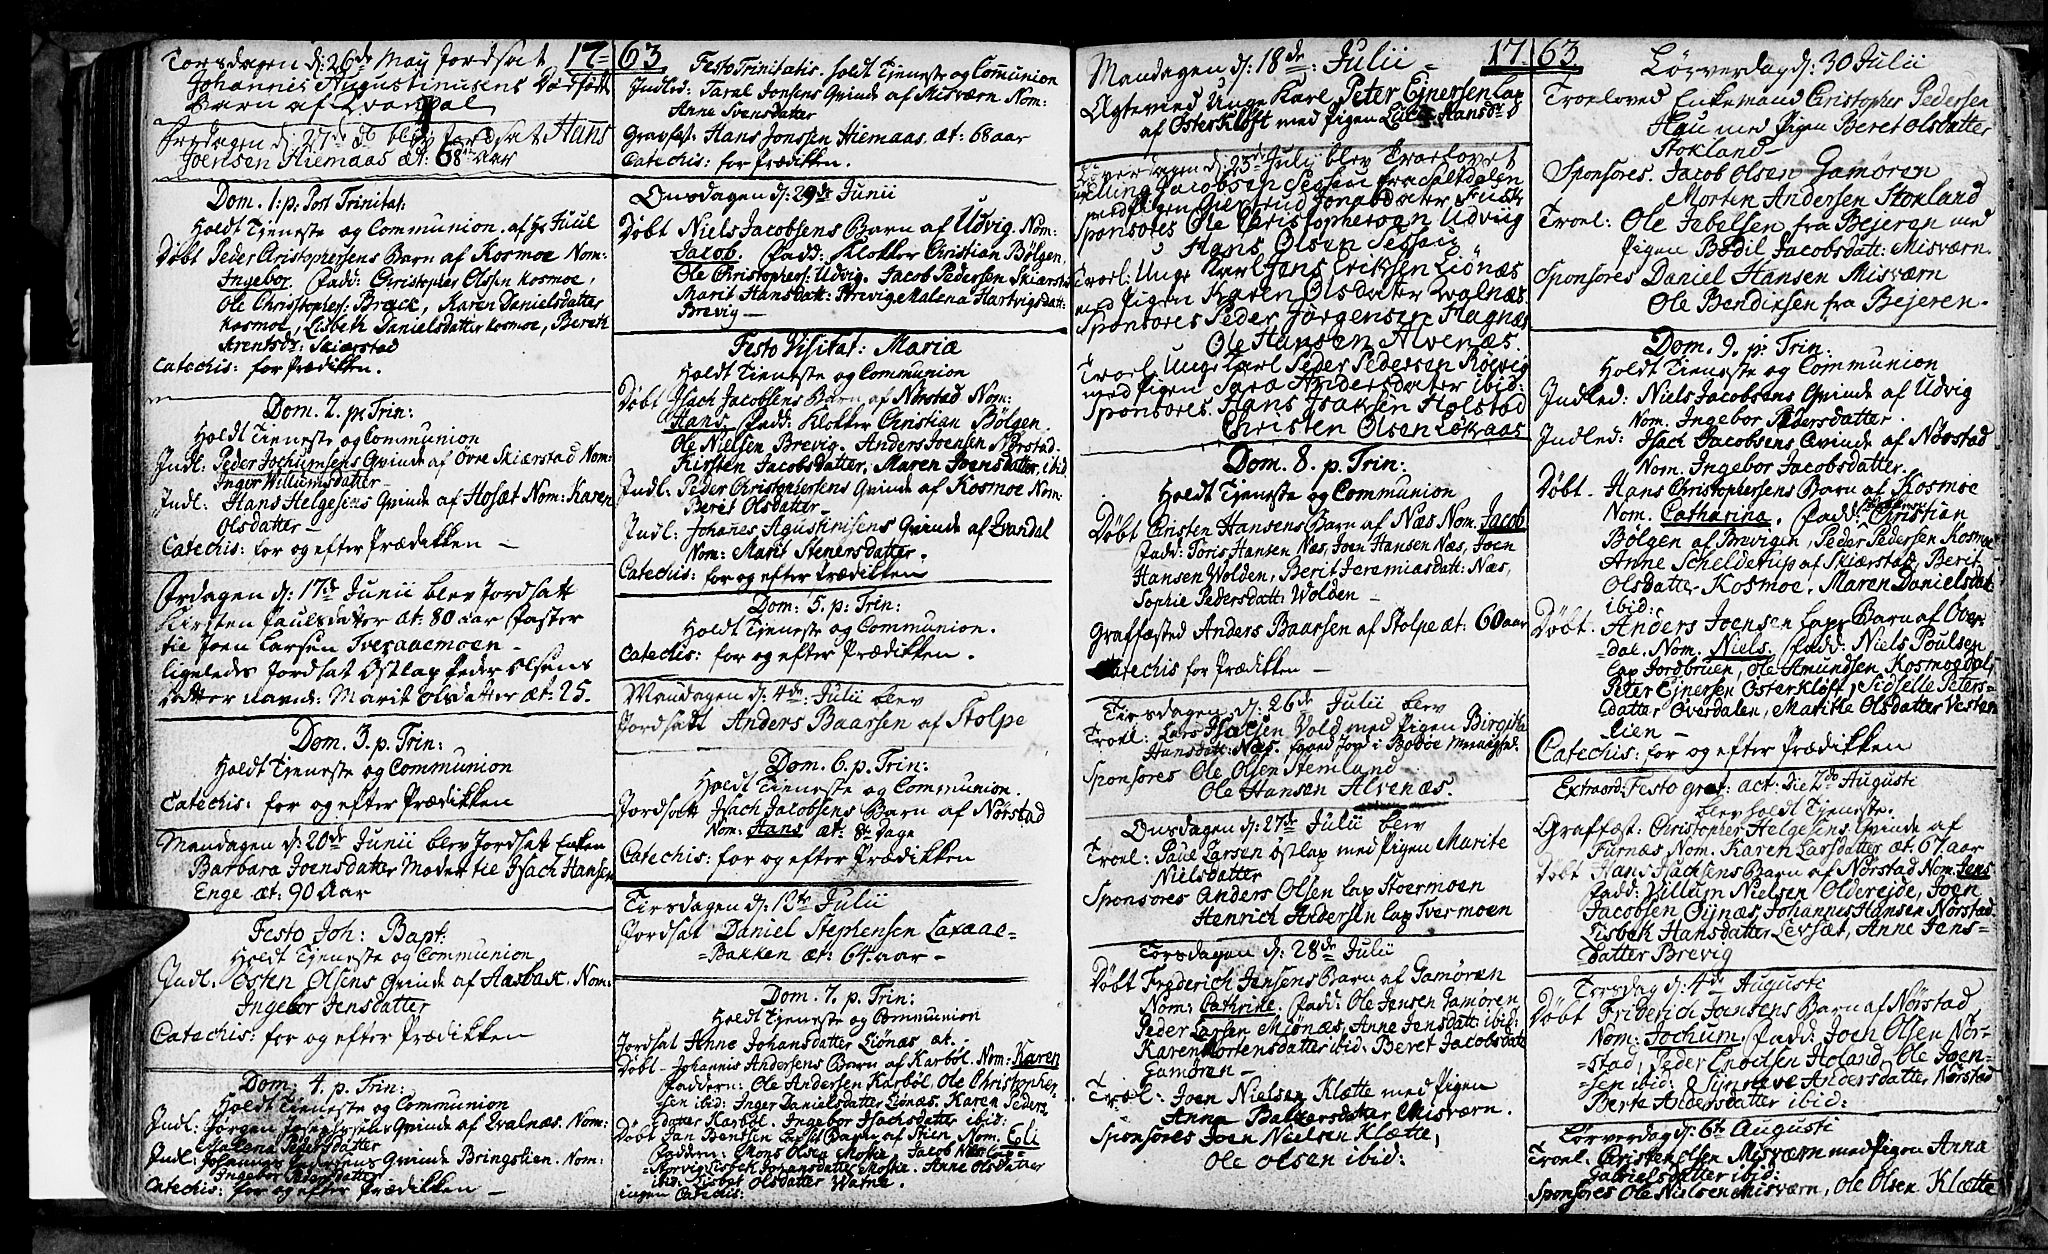 17=63
Torsdagen d: 26de May Jordsat
Johannis Augustinusens Dødfødt
Barn af Qvandal
Fredagen d: 27de do blev Jordsat Hans
Joensen Hiemaas æt: 68 aar
Dom. 1. p: Post Trinitat:
Holdt Tjeneste og Communion. af Hr Juul
Døbt Peder Christophersens Barn af Kosmoe Nom:
Ingebor. Fadd: Christopher Olsen Kosmoe,
Ole Christophers: Bræck, Karen Danielsdatter
Kosmoe, Lisbeth Danielsdatter Kosmoe, Bereth
Arentsdr: Skiærstad
Catechis: for Prædikken.
Dom. 2. p: Trin:
Holdt Tjeneste og Communion
Indl: Peder Jochumsens Qvinde af Øvre Skiærstad Nom:
Inger Willumsdatter
Indl: Hans Helgesens Qvinde af Hosæt Nom: Karen
Olsdatter
Catechis: for og efter Prædikken
Fredagen d: 17de Junii blev Jordsatt
Kirsten Paulsdatter æt: 80 aar Faster
til Joen Larsen Tveraaemoen
ligeledes Jordsat Østlap Peder Olsens
Datter navnl: Marit Olsdatter æt. 25.
Dom. 3. p. Trin:
Holdt Tjeneste og Communion
Catechis: for og efter Prædikken
Mandagen d: 20de Junii blev Jordsat Enken
Barbara Joensdatter Moder til Isach Hansen
Enge æt: 90 Aar
Festo Joh: Bapt:
Holdt Tjeneste og Communion
Indl. Østen Olsens Qvinde af Aasbak. Nom:
Ingebor Jensdatter
Catechis: for og efter Prædikken
Dom: 4. p. Trin:
Holdt Tjeneste og Communion
Indl: Jørgen Josephsens Qvinde af Qvalnæs. Nom:
Malena Pedersdatter
Indl: Johannes Pedersens Qvinde Bringslien. Nom:
Ingebor Pedersdatter
Catechis: for og efter Prædikken
Festo Trinitatis. Holdt Tjeneste og Communion
Indled: Taral Jonsens Qvinde af Misværn Nom:
Anne Svensdatter
Gravfæst: Hans Jonsen Hiemaas. æt: 68 aar
Catechis: for Prædikken.
Onsdagen d: 29de Junii
Døbt Niels Jacobsens Barn af Udvig. Nom:
Jacob. Fadd: Klokker Christian Bølgen,
Ole Christophers: Udvig. Jacob Pedersen Skiærstad
Marit Hansdatt: Brevig Malena Hartvigsdatt:
Brevig
Festo Visitat: Mariæ
Holdt Tieneste og Communion
Døbt Isach Jacobsens Barn af Nørstad Nom:
Hans. Fadd: Klokker Christian Bølgen.
Ole Nielsen Brevig. Anders Joensen Nørstad.
Kirsten Jacobsdatter, Maren Joensdatter, ibid
Indl: Peder Christophersens Qvinde af Kosmoe Nom:
Beret Olsdatter
Indl: Johanes Agustinusens Qvinde af Qvandal
Nom: Marit Stenersdatter.
Catechis: for og efter Prædikken
Dom: 5. p: Trin:
Holdt Tjeneste og Communion.
Catechis: for og efter Prædikken.
Mandagen d: 4de Julii blev
Jordsatt Anders Baarsen af Stolpe
Dom. 6. p: Trin:
Holdt Tjeneste og Communion.
Jordsatt Isach Jacobsens Barn af Nørstad
Nom: Hans æt: 8te Dage
Catechis: for og efter Prædikken
Tirsdagen d: 12te Julii
Jordsat Daniel Stephensen Laxaae=
=Bakken æt: 64. aar
Dom: 7. p. Trin:
Holdt Tjeneste og Communion
Jordsat Anne Johansdatter Liønæs æt.
Døbt Johannis Andersens Barn af Karbøl. Nom: Karen
Faddern: Ole Andersen Karbøl. Ole Christopher=
sen ibid: Inger Danielsdatter Liønæs. Karen Peders
datter Karbøl. Ingebor Isachsdatter ibid:
Døbt Jan Bentsen Laps: Barn af Stien Nom: Eli
Faddern: Mons Olsen Moske, Jacob Niels: Lap=
=Norvig Lisbet Johansdatter Moske. Anne Olsdatter
ibid: Lisbet Olsdatter Watne.
ingen Catechis:
17.63
Mandagen d: 18de Julii
Ægteviid Unge Karl Peter Ejnersen Lap
af Østerkløft med Pigen Lucia Hansdr
Løverdagen d: 23de Julij blev Troelovet
Elling Jacobsen Sessen fra Saltdalen
med Pigen Giertrud Jonasdatter Fuske
Sponsores Ole Christophersøn Udviig
Hans Olsen Sessen
Troel: Unge Karl Jens Eriksen Liønæs
med Pigen Karen Olsdatter Qvalnæs
Sponsores Peder Jørgensen Hagnæs
Ole Hansen Alvenæs.
Troel: Unge Karl Peder Pedersen Røgvig
med Pigen Sara Andersdatter ibid:
Sponsores Hans Isaksen Holstad
Christen Olsen Løkaas
Dom. 8. p. Trin:
Holdt Tjeneste og Communion
Døbt Christen Hansens Barn af Næs Nom. Jacob
Fadd: Toris Hansen Næs, Joen Hansen Næs, Joen
Hansen Wolden, Berit Jeremiasdatt: Næs,
Sophie Pedersdatt: Wolden
Graffæsted Anders Baarsen af Stolpe æt: 60 aar
Catechis for Prædikken
Tirsdagen d: 26de Julii blev
Troel: Lars Isacsen Vold med Pigen Birgithe
Hansdatt: Næs. Sponsores
Sponsores Ole Olsen Stemland
Ole Hansen Alvenæs.
Onsdagen d: 27de Julii blev
Troel: Paul Larsen Østlap med Pigen Marite
Nielsdatter
Sponsores Anders Olsen Lap Stoermoen
Henrich Andersen Lap Tvermoen
Torsdagen d: 28de Julii
Døbt Frederich Jensens Barn af Gamøren
Nom: Cathrine. Fadd: Ole Jensen Gamøren
Peder Larsen Miønæs, Anne Jensdatt: ibid:
Karen Mortensdatter ibid: Beret Jacobsdatter
Gamøren
Troel: Joen Nielsen Klætte med Pigen
Anna Baltzersdatter Misværn.
Sponsores Joen Nielsen Klætte,
Ole Olsen ibid:
Løverdag d: 30 Julii
Troeloved Enkemand Christopher Pedersen
Hau med Pigen Beret Olsdatter
Stokland
Sponsores. Jacob Olsen Gamøren
Morten Andersen Stokland
Troel: Ole Jebelsen fra Bejeren med
Pigen Bodil Jacobsdatt: Misværn.
Sponsores Daniel Hansen Misværn
Ole Bendixsen fra Bejeren.
Dom. 9. p: Trin:
Holdt Tjeneste og Communion
Indled: Niels Jacobsens Qvinde af Udvig
Nom. Ingebor Pedersdatter
Indled: Isach Jacobsens Qvinde af Nørstad
Nom. Ingebor Jacobsdatter
Døbt. Hans Christophersens Barn af Kosmoe
Nom. Catharina. Fadd: Klokkeren Christian
Bølgen af Brevigen, Peder Pedersen Kosmoe
Anne Schelderup af Skiærstad, Berit
Olsdatter Kosmoe, Maren Danielsdat:
ibid:
Døbt. Anders Joensen Laps Barn af Over=
=dal. Nom. Niels. Fadd: Niels Poulsen
Lap Jordbruen, Ole Amundsen Kosmogdal,
Peter Ejnersen Østerkløft, Sidselle Peters=
datter Overdalen, Marithe Olsdatter Vesten
lien
Catechis: for og efter Prædikken
Extraord: Festo grat: act: die 2do Augusti
blev holdt Tjeneste.
Graffæst: Christopher Helgesens Qvinde af
Furnæs Nom. Karen Larsdatter æt. 67. aar
Døbt Hans Isachsens Barn af Nørstad Nom: Jens
Fadd: Villum Nielsen Oldereide, Joen
Jacobsen Øynæs, Johannes Hansen Nørstad
Lisbek Hansdatter Levsæt, Anne Jens=
datter Brevig
Torsdag d: 4de Augusti
Døbt Friderich Jansens Barn af Nørstad
Nom: Jochum. Fadd: Joen Olsen Nør=
=stad, Peder Enochsen Holand, Ole Joen=
=sen ibid: Synneve Andersdatter Nørstad
Berte Andersdatter ibid:
Løverdag d: 6te Augusti
Troel: Christen Olsen Misværn med Pigen Anna
Gabrielsdatter ibid:
Sponsores Ole Nielsen Misværn, Ole Olsen Klætte